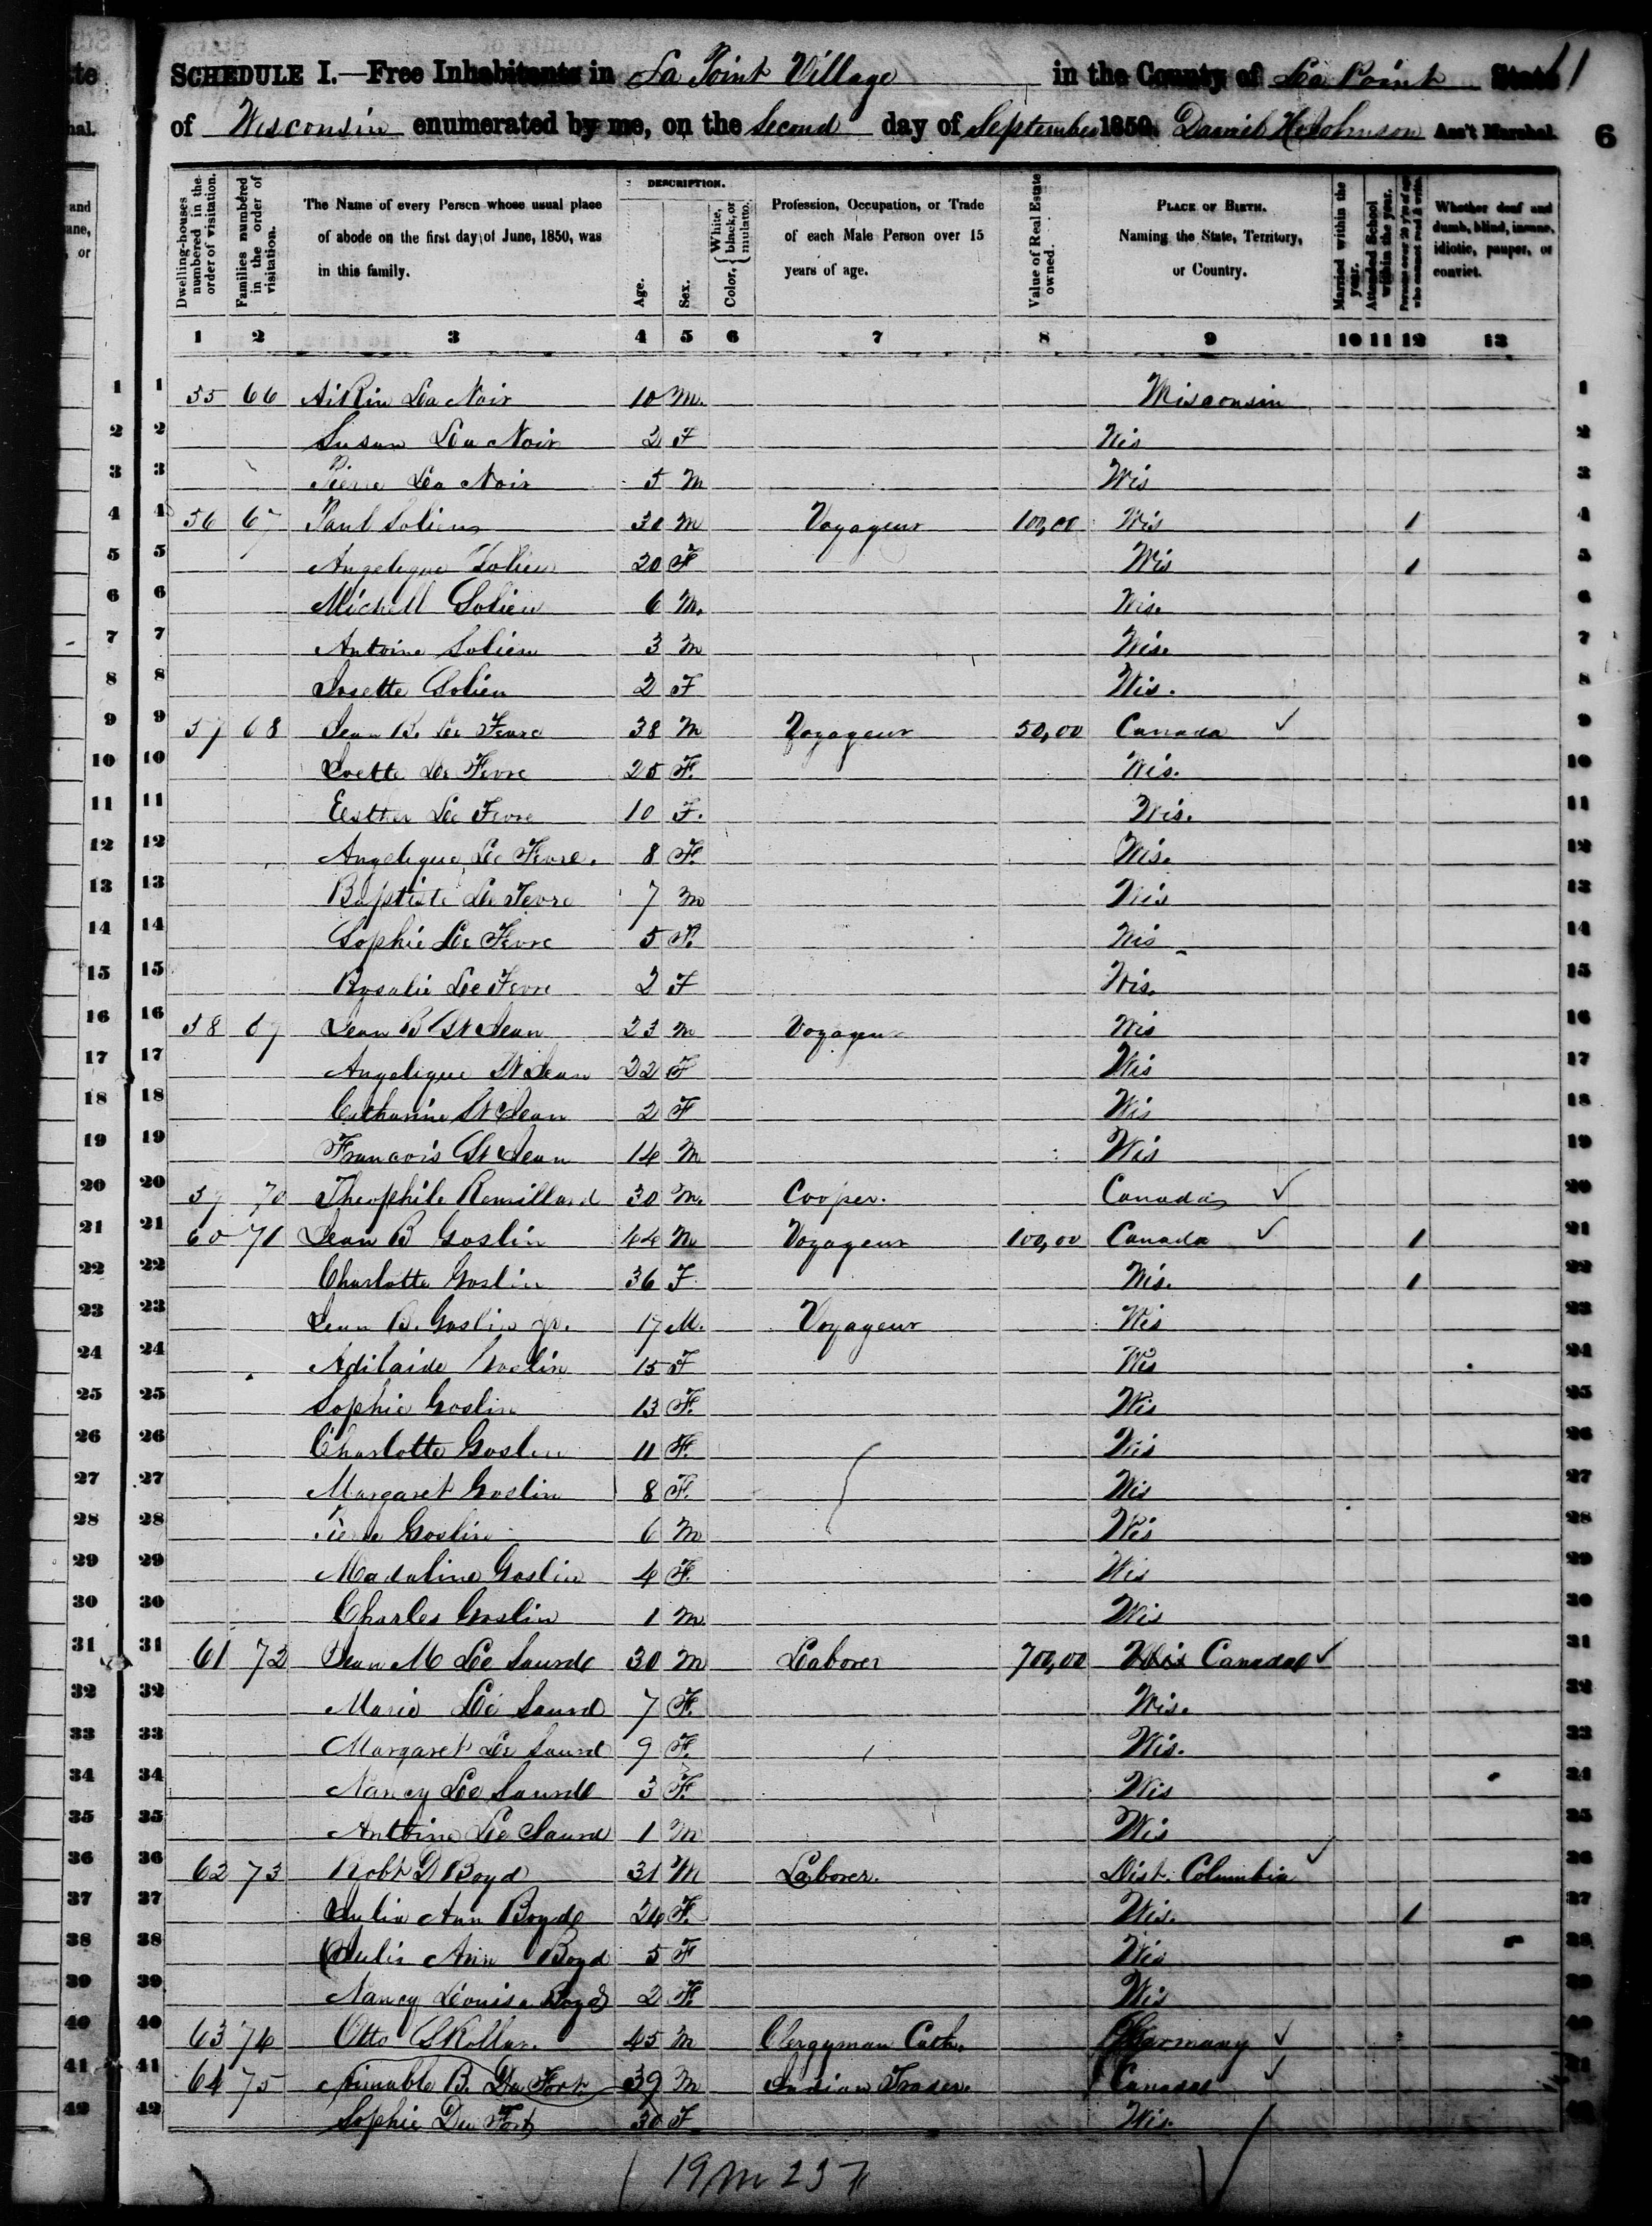 SCHEDULE I.—Free Inhabitants in La Point Village in the County of La Point State 11
of Wisconsin enumerated by me, on the Second day of September 1850. Daniel H. Johnson Ass't Marshal. 6
Dwelling-houses numbered in the order of visitation.
Families numbered in the order of visitation.
The Name of every Person whose usual place of abode on the first day of June, 1850, was in this family.
DESCRIPTION.
Age.
Sex.
Color, { White, black, or mulatto.
Profession, Occupation, or Trade of each Male Person over 15 years of age.
Value of Real Estate owned.
PLACE OF BIRTH. Naming the State, Territory, or Country.
Married within the year.
Attended School within the year.
Persons over 20 y'rs of age who cannot read & write.
Whether deaf and dumb, blind, insane, idiotic, pauper, or convict.
1 2 3 4 5 6 7 8 9 10 11 12 13
1 55 66 La Noir 10 M. Wisconsin 1
2 Susan La Noir 2 F Wis 2
3 Pierre La Noir 5 M Wis 3
4 56 67 Paul Solien 30 M Voyageur 100,00 Wis 1 4
5 Angelique Solien 20 F Wis 1 5
6 Michell Solien 6 M. Wis. 6
7 Antoine Solien 3 M Wis. 7
8 Josette Solien 2 F Wis. 8
9 57 68 Jean B. Le Fevre 38 M Voyageur 50,00 Canada ✓ 9
10 Le Fevre 25 F. Wis. 10
11 Esther Le Fevre 10 F. Wis. 11
12 Angelique Le Fevre. 8 F. Wis. 12
13 Baptiste Le Fevre 7 M Wis 13
14 Sophie Le Fevre 5 F. Wis 14
15 Rosalie Le Fevre 2 F Wis. 15
16 58 69 Jean B St Jean 23 M Voyageur Wis 16
17 Angelique St Jean 22 F Wis 17
18 Catharine St Jean 2 F Wis 18
19 Francois St Jean 14 M Wis 19
20 59 70 Theophile Remillard 30 M. Cooper. Canada ✓ 20
21 60 71 Jean B Goslin 44 M Voyageur 100,00 Canada ✓ 1 21
22 Charlotte Goslin 36 F. Wis. 1 22
23 Jean B. Goslin Jr. 17 M. Voyageur Wis 23
24 Adilaide Goslin 15 F Wis 24
25 Sophie Goslin 13 F. Wis 25
26 Charlotte Goslin 11 F. Wis 26
27 Margaret Goslin 8 F. Wis 27
28 Pierre Goslin 6 M Wis 28
29 Madaline Goslin 4 F. Wis 29
30 Charles Goslin 1 M Wis 30
31 61 72 Jean M Le Saurd 30 M Laborer 700,00 Wis Canada ✓ 31
32 Marie Le Saurd 7 F. Wis. 32
33 Margaret Le Saurd 9 F. Wis. 33
34 Nancy Le Saurd 3 F. Wis 34
35 Antoine Le Saurd 1 M Wis 35
36 62 73 Robt D Boyd 31 M Laborer. Dist. Columbia ✓ 36
37 Julia Ann Boyd 24 F. Wis. 1 37
38 Julia Ann Boyd 5 F Wis 38
39 Nancy Louisa Boyd 2 F. Wis 39
40 63 74 Otto Skollar. 45 M Clergyman Cath. Germany ✓ 40
41 64 75 Aimable B. Du Fort 39 M Indian Trader. Canada ✓ 41
42 Sophie Du Fort 30 F Wis. 42
19 M 23 F